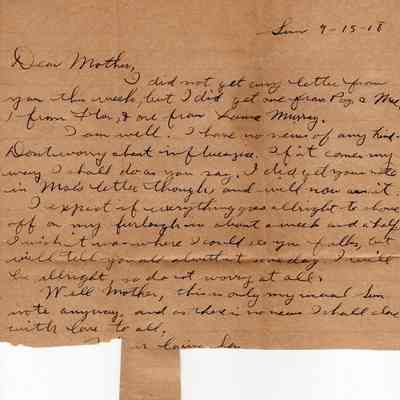 Sun 9-15-18
Dear Mother,
I did not get any letter from
you this week, but I did get one from Pop, & Mae,
1 from Flo, & one from Murray.
I am well. I have no news of any kind.
Dont worry about influenza. If it comes my
way I shall do as you say. I did get your note
in letter though and will now use it.
I expect if everything goes allright to shove
off on my furlough in about a week and a half.
I wish it was where I could see you folks, but
will tell you all about it some day. I will
be allright, so do not worry at all.
Well Mother, this is only my usual Sun
note anyway, and as there is no news I shall close
with love to all,
Your loving Son